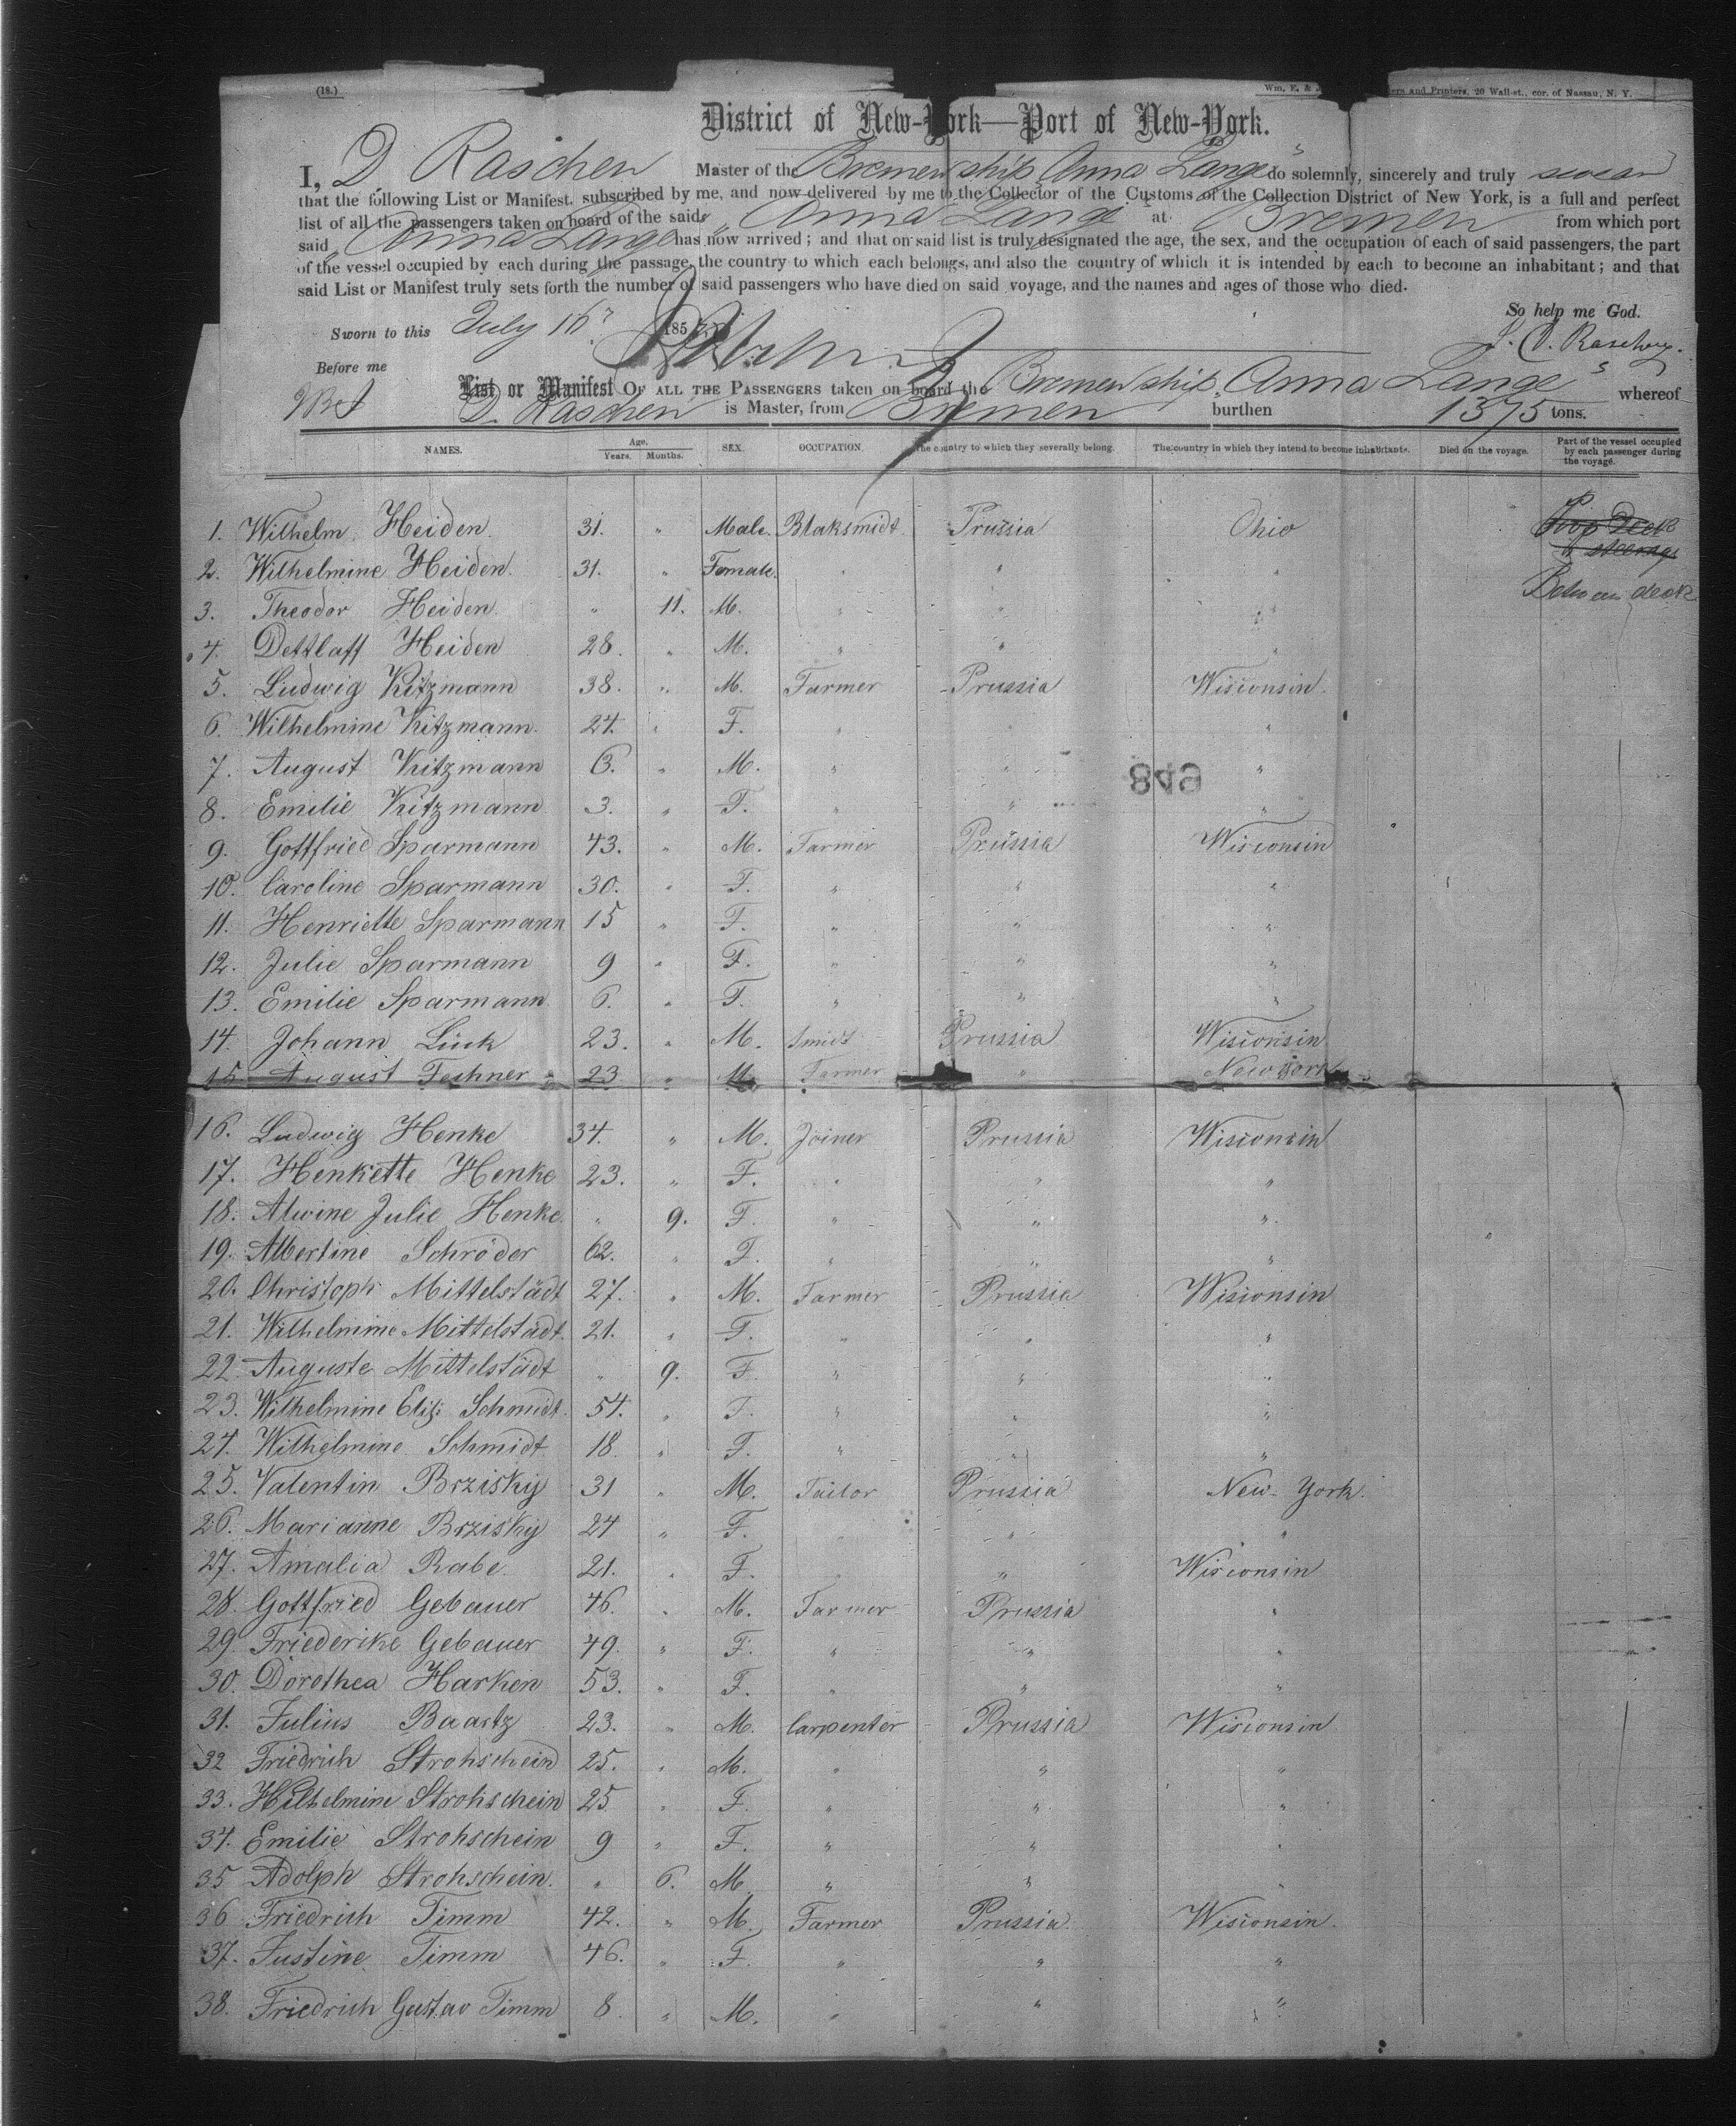 (18.)
Wm. E. & ers and Printers, 20 Wall-st., cor. of Nassau, N. Y.
District of New-York—Port of New-York.
I, D. Raschen Master of the Bremen ship Anna Lange do solemnly, sincerely and truly swear
that the following List or Manifest, subscribed by me, and now delivered by me to the Collector of the Customs of the Collection District of New York, is a full and perfect
list of all the passengers taken on board of the said „ Anna Lange at Bremen from which port
said „ Anna Lange has now arrived; and that on said list is truly designated the age, the sex, and the occupation of each of said passengers, the part
of the vessel occupied by each during the passage, the country to which each belongs, and also the country of which it is intended by each to become an inhabitant; and that
said List or Manifest truly sets forth the number of said passengers who have died on said voyage, and the names and ages of those who died.
So help me God.
Sworn to this July 16 185
D. Raschen.
Before me
List or Manifest OF ALL THE PASSENGERS taken on board the Bremen ship „ Anna Lange " whereof
D. Raschen is Master, from Bremen burthen 1375 tons.
NAMES. Age. Years. Months. SEX. OCCUPATION. The country to which they severally belong. The country in which they intend to become inhabitants. Died on the voyage. Part of the vessel occupied by each passenger during the voyage.
1. Wilhelm Heiden. 31. " Male. Blaksmidt Prussia Ohio Poop Deck
& steerage
2. Wilhelmine Heiden. 31. " Female. " " "
Between deck
3. Theodor Heiden. " 11. M. " " "
4. Dettlaff Heiden 28. " M. " " "
5. Ludwig Kitzmann 38. " M. Farmer Prussia Wisconsin.
6. Wilhelmine Kitzmann. 24. " F. " " "
7. August Kitzmann 6. " M. " " "
849
8. Emilie Kitzmann 3. " F. " " "
9. Gottfried Sparmann 43. " M. Farmer Prussia Wisconsin
10. Caroline Sparmann 30. " F. " " "
11. Henriette Sparmann 15 " F. " " "
12. Julie Sparmann 9 " F. " " "
13. Emilie Sparmann 6. " F. " " "
14. Johann Lück 23. " M. Smidt Prussia Wisconsin
15. August Fechner 23 " M. Farmer " New York
16. Ludwig Henke 34. " M. Joiner Prussia Wisconsin
17. Henkette Henke 23. " F. " " "
18. Alwine Julie Henke. " 9. F. " " "
19. Albertine Schröder 62. " F. " " "
20. Christoph Mittelstädt 27. " M. Farmer Prussia Wisconsin
21. Wilhelmine Mittelstädt. 21. " F. " " "
22. Auguste Mittelstädt " 9. F. " " "
23. Wilhelmine Elis: Schmidt. 54. " F. " " "
24. Wilhelmine Schmidt 18 " F. " " "
25. Valentin Brzisky 31 " M. Tailor Prussia New-York.
26. Marianne Brzisky 24 " F. " " "
27. Amalia Rabe. 21. " F. " " Wisconsin
28. Gottfried Gebauer 46. " M. Farmer Prussia "
29. Friederike Gebauer 49. " F. " " "
30. Dorothea Harken 53. " F. " " "
31. Julius Baartz 23. " M. Carpenter Prussia Wisconsin
32 Friedrich Strohschein 25. " M. " " "
33. Wilhelmine Strohschein 25 " F. " " "
34. Emilie Strohschein 9 " F. " " "
35 Adolph Strohschein. " 6. M. " " "
36 Friedrich Timm 42. " M. Farmer Prussia. Wisconsin.
37. Justine Timm 46. " F. " " "
38. Friedrich Gustav Timm 8. " M. " " "